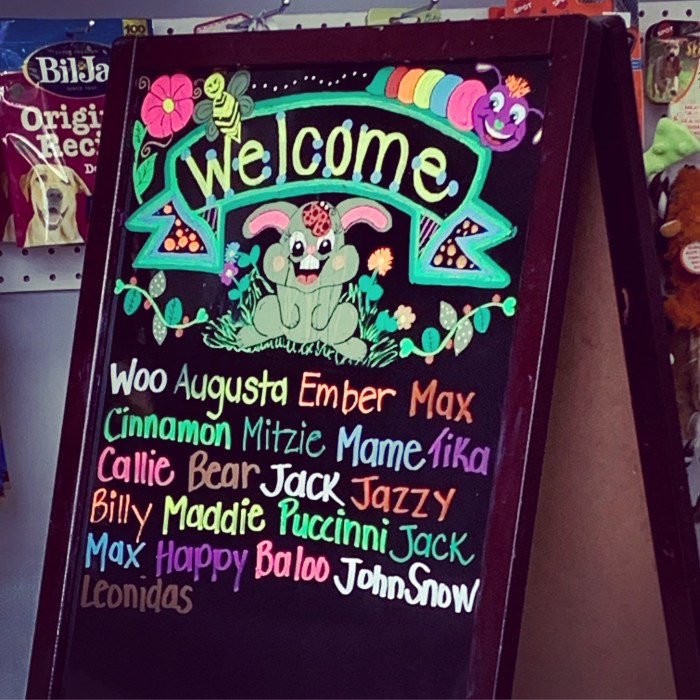 BilJac
Origi
Reci
Welcome
Woo Augusta Ember Max
Cinnamon Mitzie Mame Tika
Callie Bear Jack Jazzy
Billy Maddie Puccinni Jack
Max Happy Baloo JohnSnow
Leonidas
SPOT